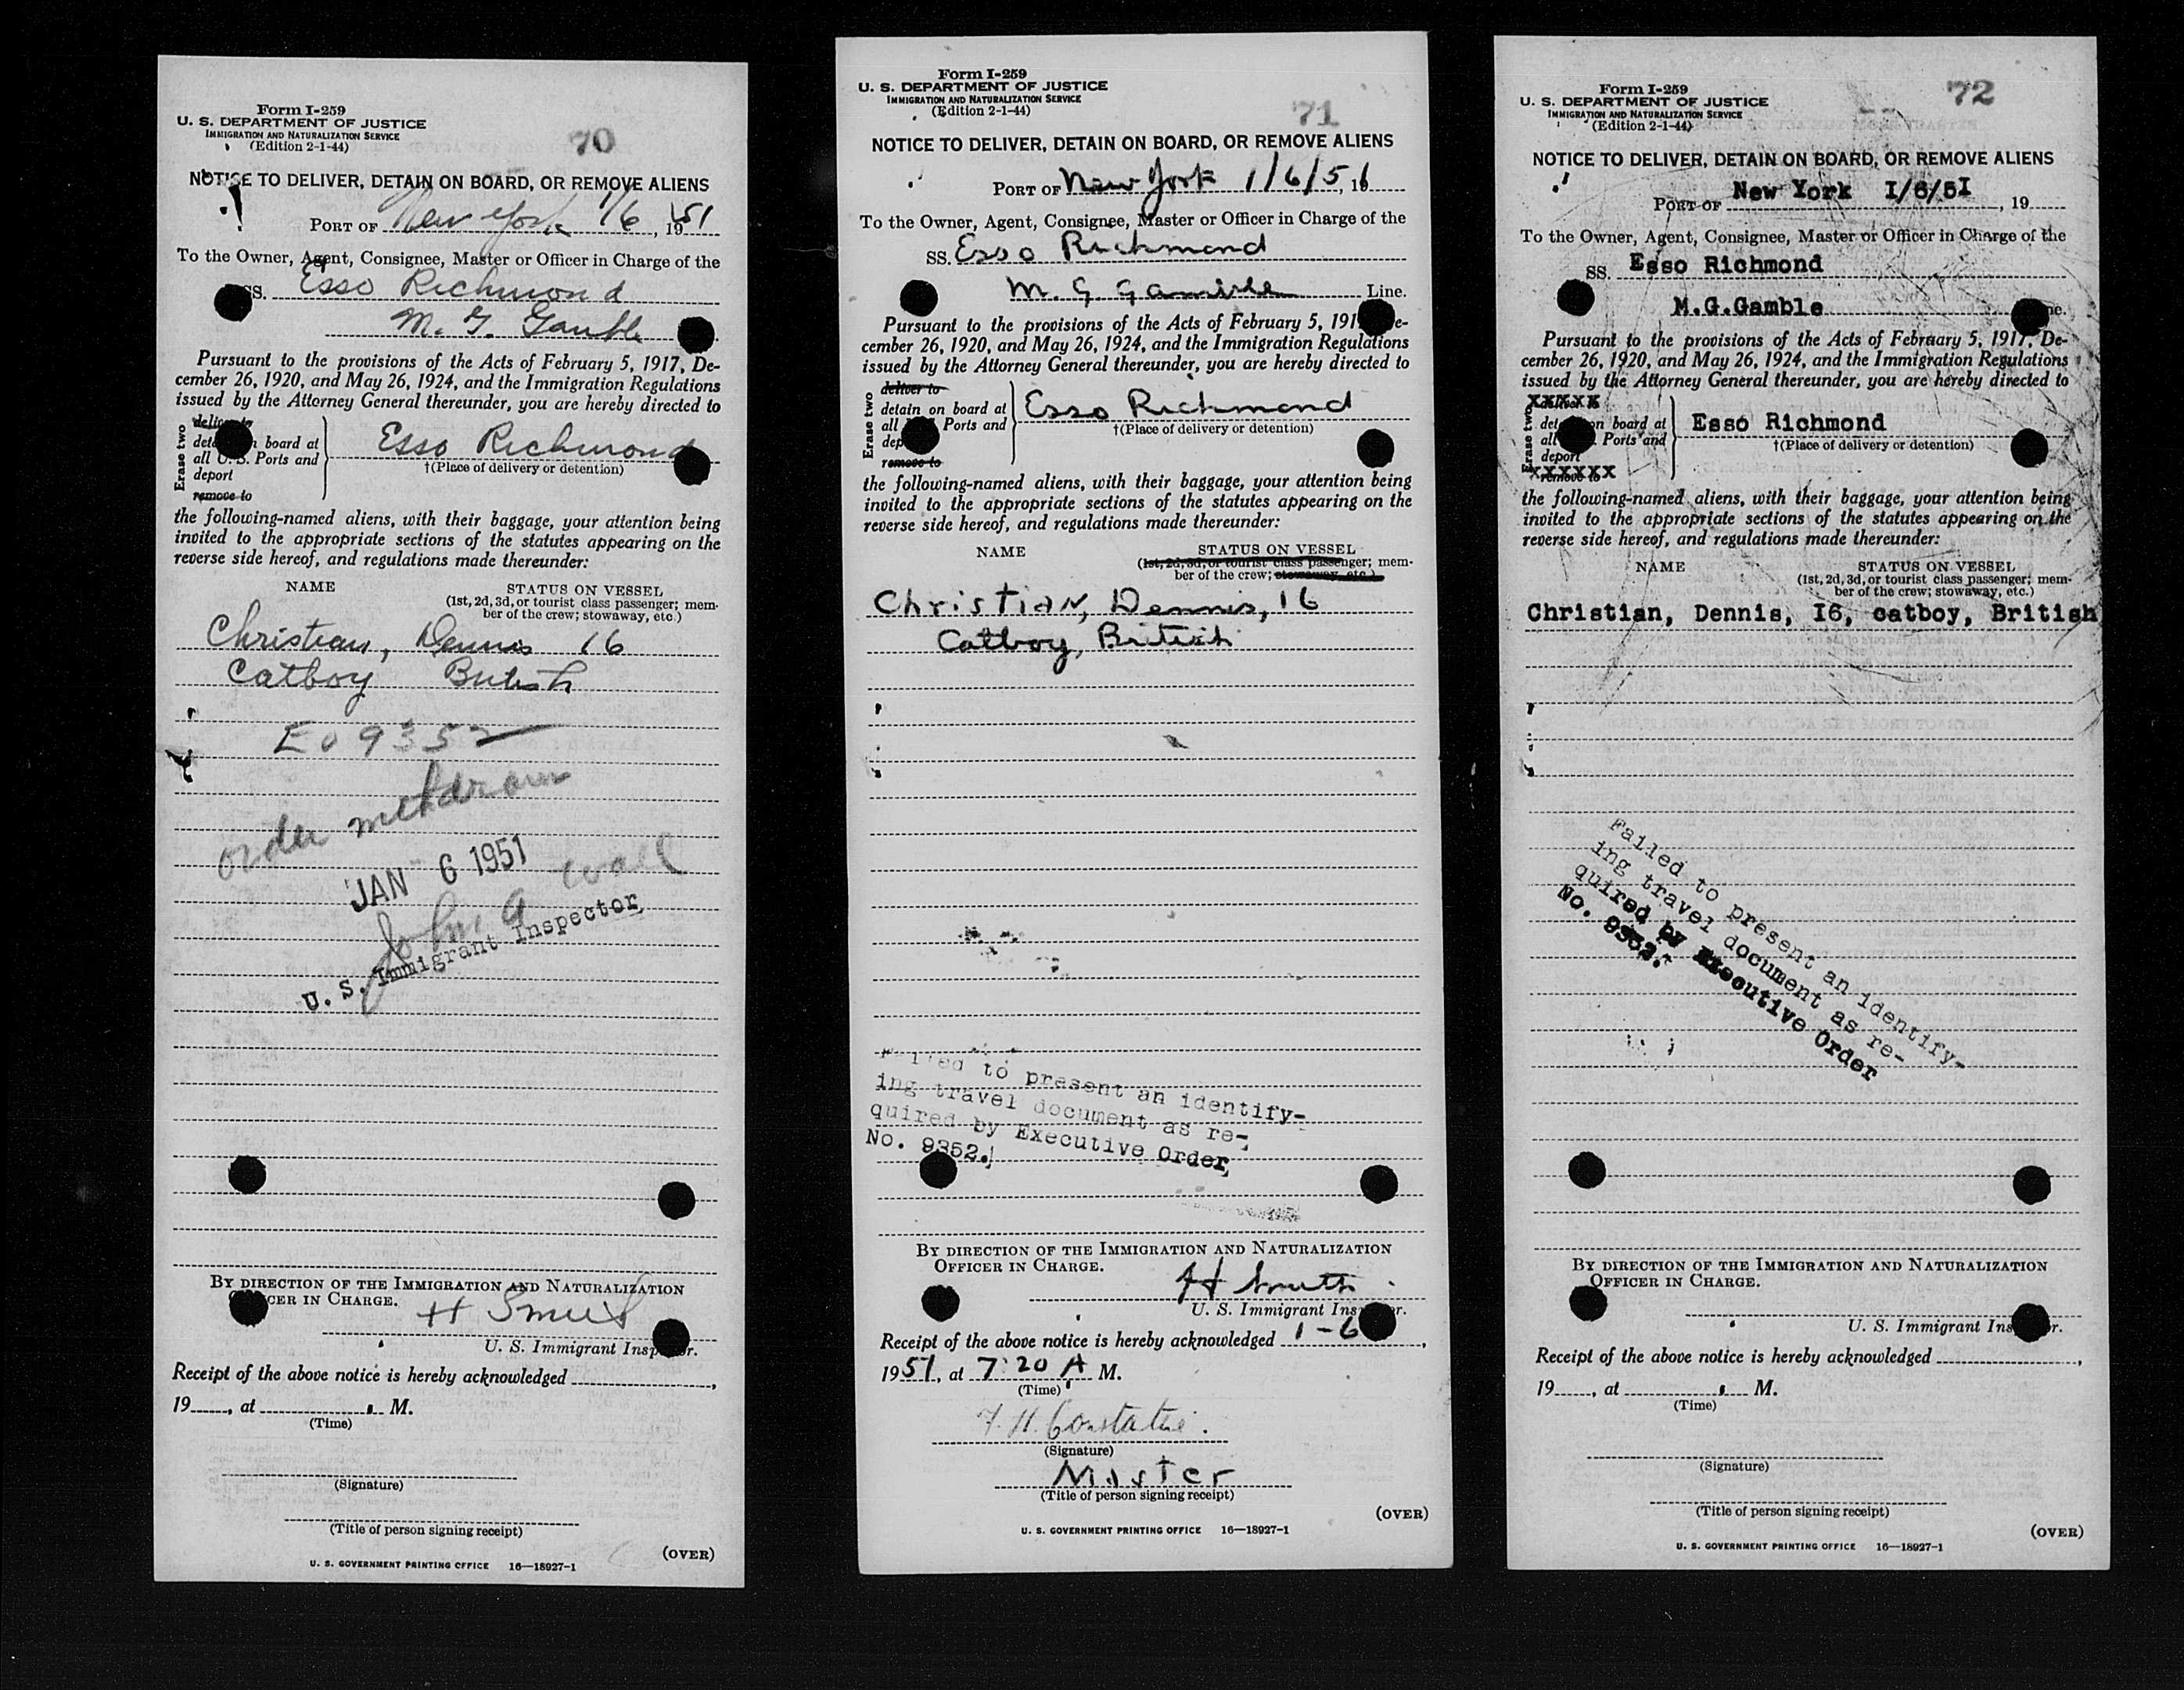 Form I-259
U. S. DEPARTMENT OF JUSTICE
IMMIGRATION AND NATURALIZATION SERVICE
(Edition 2-1-44)
70
NOTICE TO DELIVER, DETAIN ON BOARD, OR REMOVE ALIENS
PORT OF New York 1/6, 1951
To the Owner, Agent, Consignee, Master or Officer in Charge of the
SS. Esso Richmond
M. G. Gamble
Pursuant to the provisions of the Acts of February 5, 1917, De-
cember 26, 1920, and May 26, 1924, and the Immigration Regulations
issued by the Attorney General thereunder, you are hereby directed to
Erase two
deliver to
on board at
all U. S. Ports and
deport
remove to
Esso Richmond
†(Place of delivery or detention)
the following-named aliens, with their baggage, your attention being
invited to the appropriate sections of the statutes appearing on the
reverse side hereof, and regulations made thereunder:
NAME STATUS ON VESSEL
(1st, 2d, 3d, or tourist class passenger; mem-
ber of the crew; stowaway, etc.)
Christian, Dennis 16
Catboy British
EO 9352
order withdrawn
JAN 6 1951
John A Wall
U. S. Immigrant Inspector
BY DIRECTION OF THE IMMIGRATION AND NATURALIZATION
OFFICER IN CHARGE.
H Smith
U. S. Immigrant Inspector.
Receipt of the above notice is hereby acknowledged ,
19 , at M.
(Time)
(Signature)
(Title of person signing receipt)
(OVER)
U. S. GOVERNMENT PRINTING OFFICE 16—18927-1
Form I-259
U. S. DEPARTMENT OF JUSTICE
IMMIGRATION AND NATURALIZATION SERVICE
(Edition 2-1-44)
71
NOTICE TO DELIVER, DETAIN ON BOARD, OR REMOVE ALIENS
PORT OF New York 1/6/51, 19
To the Owner, Agent, Consignee, Master or Officer in Charge of the
SS. Esso Richmond
M. G Gamble Line.
Pursuant to the provisions of the Acts of February 5, 1917, De-
cember 26, 1920, and May 26, 1924, and the Immigration Regulations
issued by the Attorney General thereunder, you are hereby directed to
Erase two
deliver to
detain on board at
all Ports and
dep
remove to
Esso Richmond
†(Place of delivery or detention)
the following-named aliens, with their baggage, your attention being
invited to the appropriate sections of the statutes appearing on the
reverse side hereof, and regulations made thereunder:
NAME STATUS ON VESSEL
(1st, 2d, 3d, or tourist class passenger; mem-
ber of the crew; stowaway, etc.)
Christian, Dennis, 16
Catboy, British
Failed to present an identify-
ing travel document as re-
quired by Executive Order
No. 9352.
BY DIRECTION OF THE IMMIGRATION AND NATURALIZATION
OFFICER IN CHARGE.
H Smith
U. S. Immigrant Inspector.
Receipt of the above notice is hereby acknowledged 1-6,
1951, at 7:20 A M.
(Time)
(Signature)
Master
(Title of person signing receipt)
(OVER)
U. S. GOVERNMENT PRINTING OFFICE 16—18927-1
Form I-259
U. S. DEPARTMENT OF JUSTICE
IMMIGRATION AND NATURALIZATION SERVICE
(Edition 2-1-44)
72
NOTICE TO DELIVER, DETAIN ON BOARD, OR REMOVE ALIENS
PORT OF New York I/6/5I, 19
To the Owner, Agent, Consignee, Master or Officer in Charge of the
SS. Esso Richmond
M.G.Gamble
Pursuant to the provisions of the Acts of February 5, 1917, De-
cember 26, 1920, and May 26, 1924, and the Immigration Regulations
issued by the Attorney General thereunder, you are hereby directed to
Erase two
XXXXX
on board at
all Ports and
deport
XXXXXX
remove to
Esso Richmond
†(Place of delivery or detention)
the following-named aliens, with their baggage, your attention being
invited to the appropriate sections of the statutes appearing on the
reverse side hereof, and regulations made thereunder:
NAME STATUS ON VESSEL
(1st, 2d, 3d, or tourist class passenger; mem-
ber of the crew; stowaway, etc.)
Christian, Dennis, I6, catboy, British
Failed to present an identify-
ing travel document as re-
quired by Executive Order
No. 9352.
BY DIRECTION OF THE IMMIGRATION AND NATURALIZATION
OFFICER IN CHARGE.
U. S. Immigrant Inspector.
Receipt of the above notice is hereby acknowledged ,
19 , at M.
(Time)
(Signature)
(Title of person signing receipt)
(OVER)
U. S. GOVERNMENT PRINTING OFFICE 16—18927-1